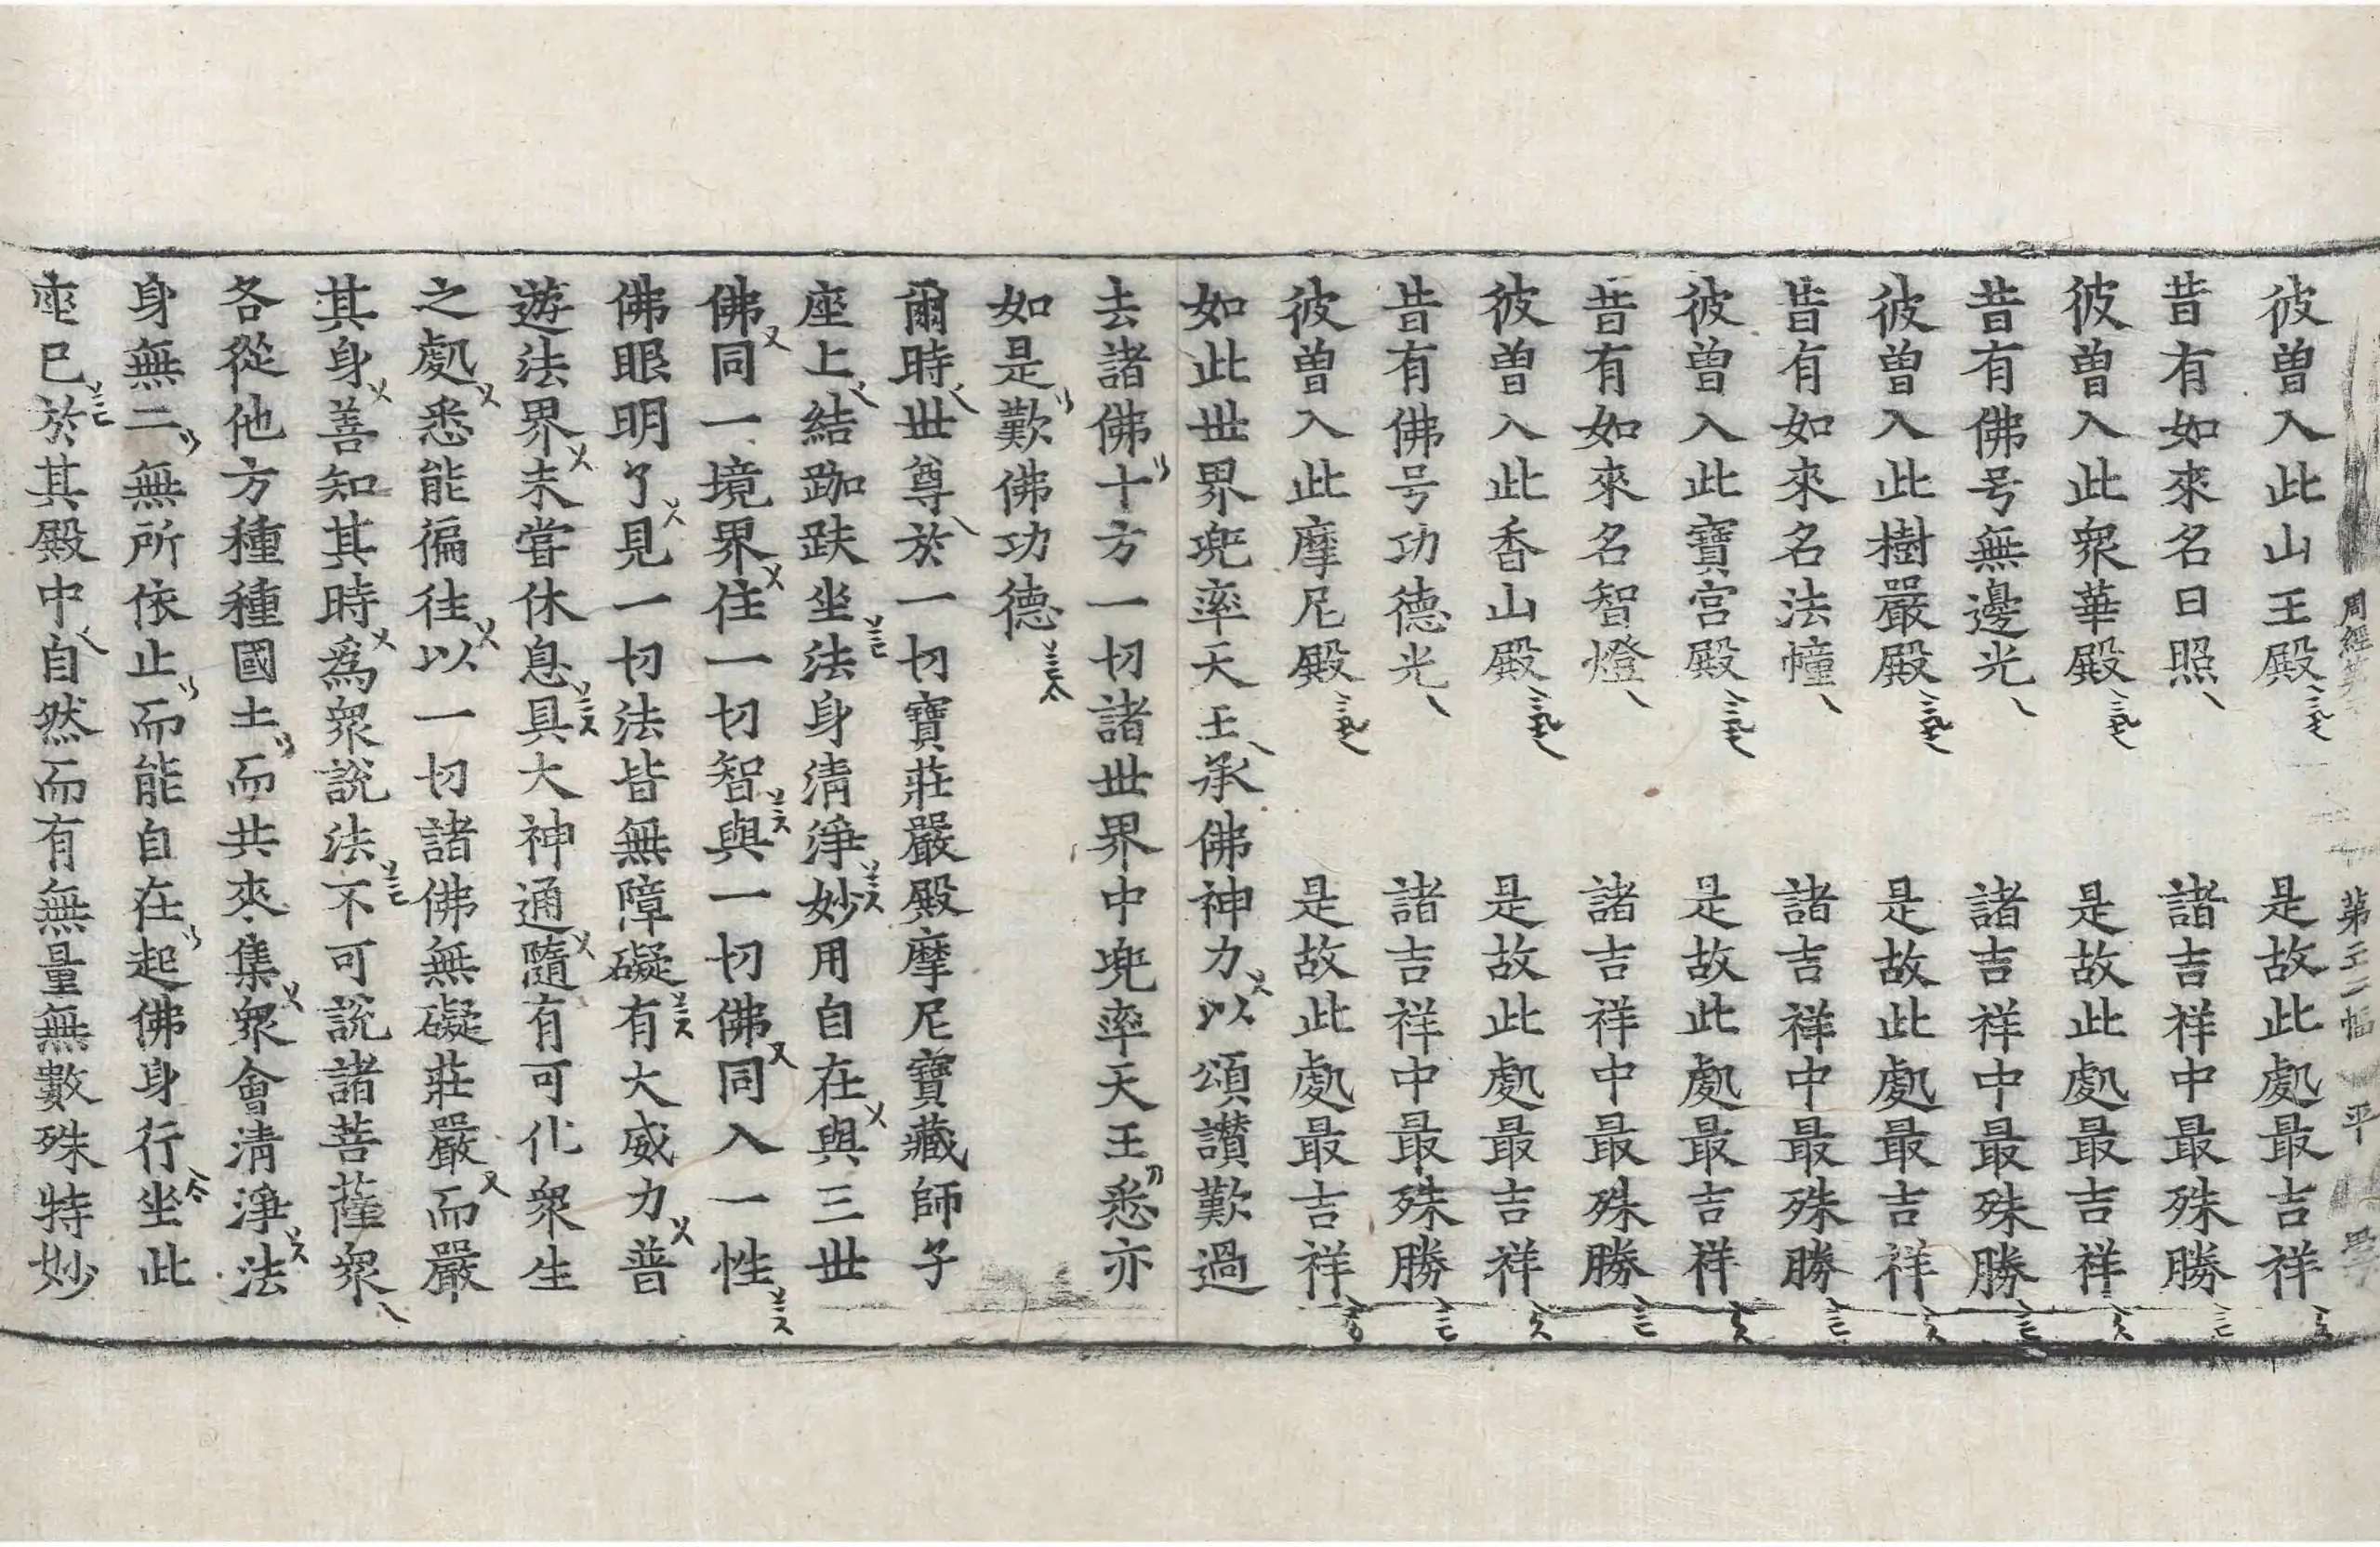 周經第 第三二幅 平
彼曽入此山王殿 是故此處最吉祥
昔有如來名日照 諸吉祥中最殊勝
彼曽入此衆華殿 是故此處最吉祥
昔有佛号無邊光 諸吉祥中最殊勝
彼曽入此樹嚴殿 是故此處最吉祥
昔有如來名法幢 諸吉祥中最殊勝
彼曽入此寶宮殿 是故此處最吉祥
昔有如來名智燈 諸吉祥中最殊勝
彼曽入此香山殿 是故此處最吉祥
昔有佛号功德光 諸吉祥中最殊勝
彼曽入此摩尼殿 是故此處最吉祥
如此世界兜率天王承佛神力以頌讃歎過
去諸佛十方一切諸世界中兜率天王悉亦
如是歎佛功德
爾時世尊於一切寶莊嚴殿摩尼寶藏師子
座上結跏趺坐法身清淨妙用自在與三世
佛同一境界住一切智與一切佛同入一性
佛眼明了見一切法皆無障礙有大威力普
遊法界未嘗休息具大神通隨有可化衆生
之處悉能徧往以一切諸佛無礙莊嚴而嚴
其身善知其時爲衆說法不可說諸菩薩衆
各從他方種種國土而共來集衆會清淨法
身無二無所依止而能自在起佛身行坐此
座已於其殿中自然而有無量無數殊特妙